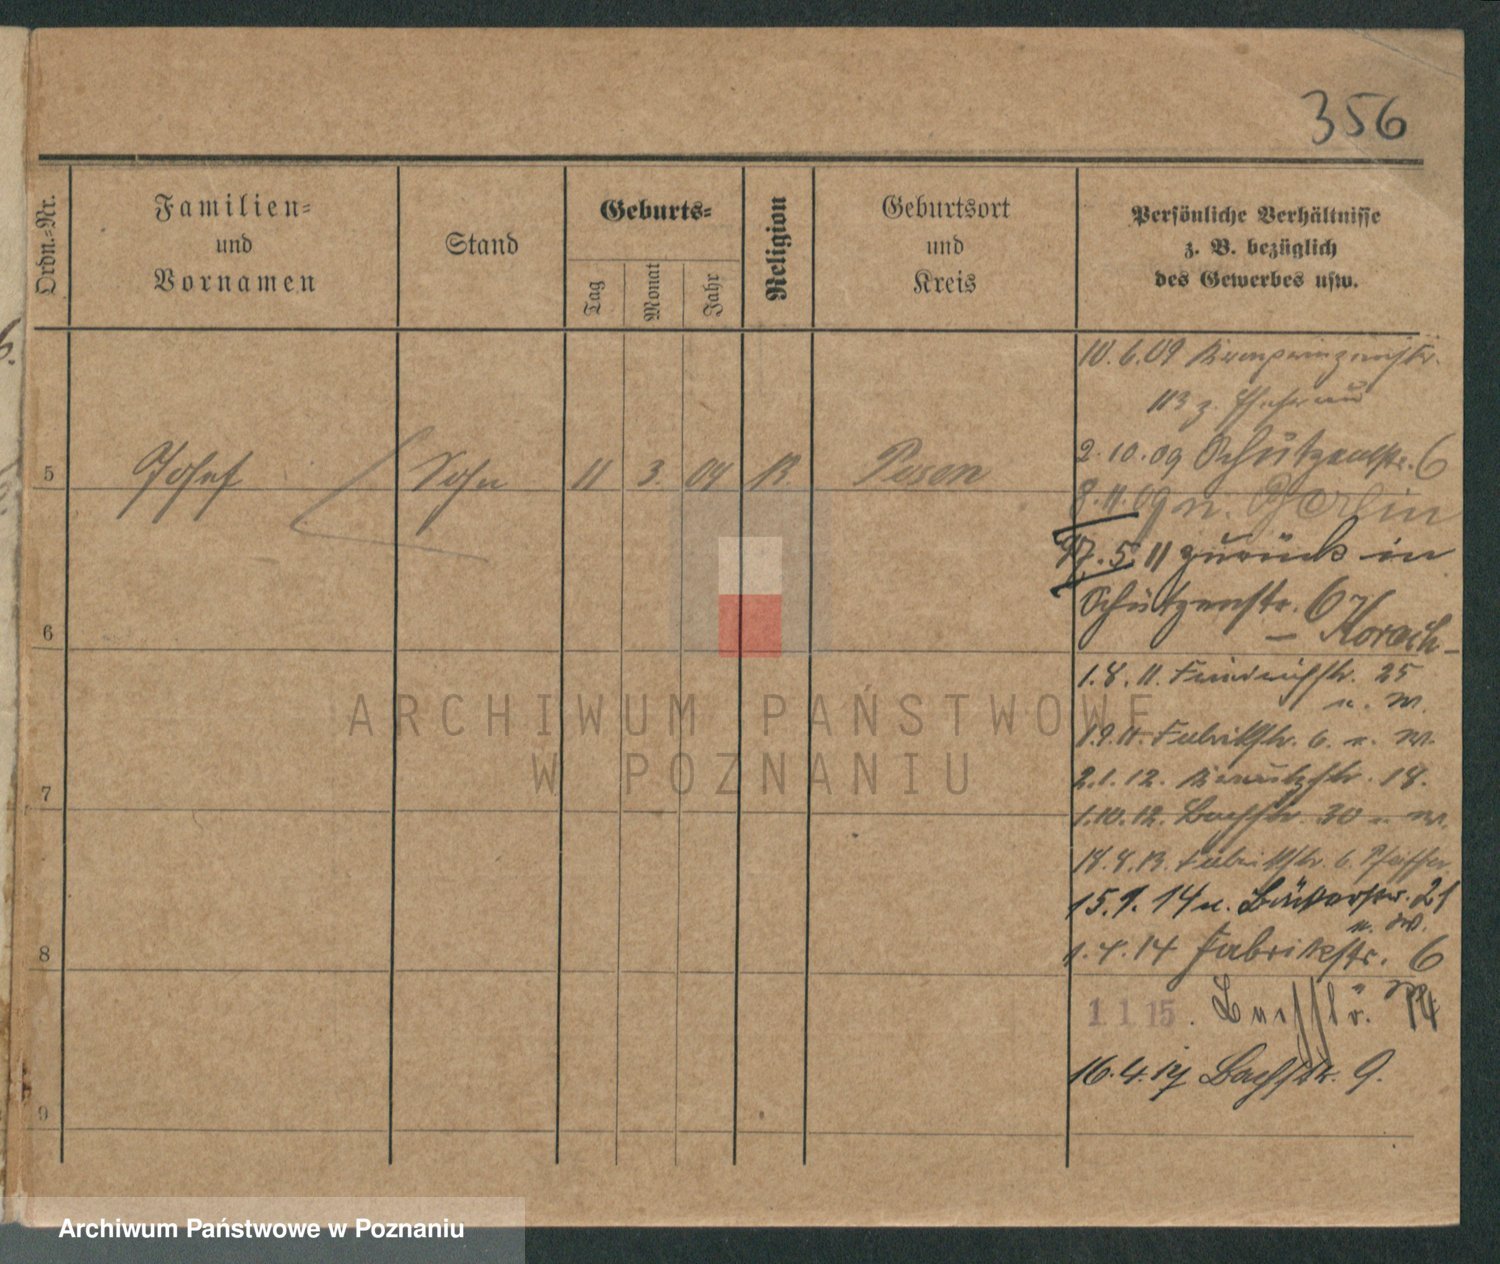 356
Ordn.-Nr.
Familien-
und
Vornamen
Stand
Geburts-
Tag
Monat
Jahr
Religion
Geburtsort
und
Kreis
Persönliche Verhältnisse
z. B. bezüglich
des Gewerbes usw.
10.6.09 Kronprinzenstr.
113 z.
2.10.09 Schützenstr. 6
5 Josef Sohn 11 3. 04 K. Posen
8.11.09 n. Berlin
17.5.11 zurück in
Schützenstr. 6
6
– Korach –
1.8.11. Friedrichstr. 25
n. W.
1.9.11. Fabrikstr. 6 n. W.
2.1.12. 18.
7
1.10.12. Bachstr. 30 n. W.
Fabrikstr. 6
15.1.14 n. Bäckerstr. 21
n. W.
1.4.14 Fabrikstr. 6
8
1 1 15. Bachstr.
16.4.17 Bachstr. 9.
9
ARCHIWUM PAŃSTWOWE
W POZNANIU
Archiwum Państwowe w Poznaniu